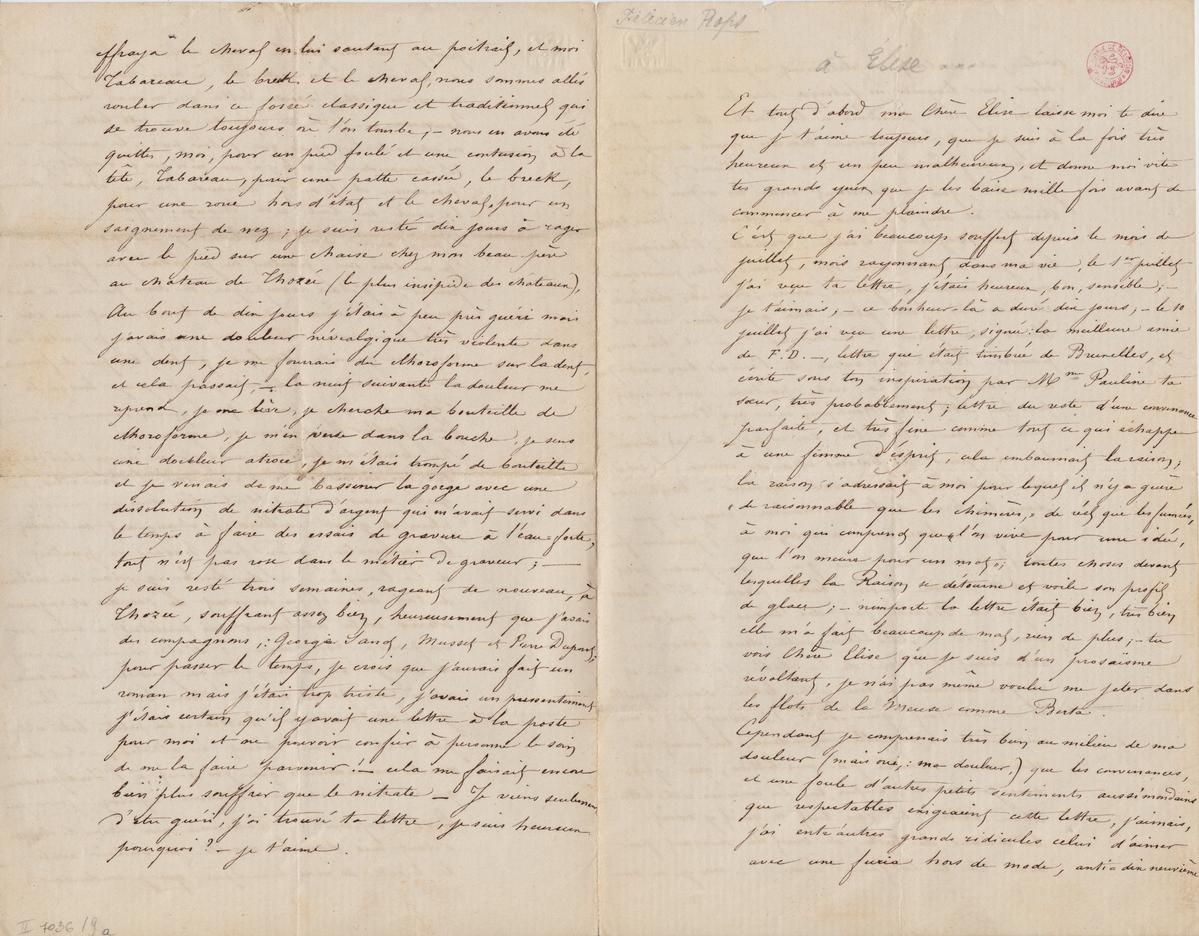 effraya le cheval en lui sautant au poitrail, et moi
Tabareau, le breck et le cheval, nous sommes allés
rouler dans ce fossé classique et traditionnel qui
se trouve toujours où l'on tombe; – nous en avons été
quittes, moi, pour un pied foulé et une contusion à la
tête, Tabareau, pour une patte cassée, le breck,
pour une roue hors d'état et le cheval, pour un
saignement de nez; je suis resté dix jours à rager
avec le pied sur une chaise chez mon beau père
au château de Thozée (le plus insipide des châteaux).
Au bout de dix jours j'étais à peu près guéri mais
j'avais une douleur névralgique très violente dans
une dent, je me fourrais du chloroforme sur la dent,
et cela passait, – la nuit suivante la douleur me
reprend, je me lève, je cherche ma bouteille de
chloroforme, je m'en verse dans la bouche, je sens
une douleur atroce, je m'étais trompé de bouteille
et je venais de me bassiner la gorge avec une
dissolution de nitrate d'argent qui m'avait servi dans
le temps à faire des essais de gravure à l'eau-forte,
tout n'est pas rose dans le métier de graveur; –
je suis resté trois semaines, rageant de nouveau, à
Thozée, souffrant assez bien, heureusement que j'avais
des compagnons: George Sand, Musset et Pierre Dupont,
pour passer le temps, je crois que j'aurais fait un
roman mais j'étais trop triste, j'avais un pressentiment
j'étais certain qu'il y avait une lettre à la poste
pour moi et ne pouvoir confier à personne le soin
de me la faire parvenir! – cela me faisait encore
bien plus souffrir que le nitrate – Je viens seulement
d'être guéri, j'ai trouvé ta lettre, je suis heureux
pourquoi? – je t'aime.
II 7036/9 a
Félicien Rops
à Elise
Et tout d'abord ma Chère Elise laisse moi te dire
que je t'aime toujours, que je suis à la fois très
heureux et un peu malheureux, et donne moi vite
tes grands yeux que je les baise mille fois avant de
commencer à me plaindre.
C'est que j'ai beaucoup souffert depuis le mois de
juillet, mois rayonnant dans ma vie, le 1er juillet
j'ai reçu ta lettre, j'étais heureux, bon, sensible; –
je t'aimais, – ce bonheur-là a duré dix jours, – le 10
juillet j'ai reçu une lettre, signée: la meilleure amie
de F. D. –, lettre que était timbrée de Bruxelles, et
écrite sous ton inspiration par Mme Pauline ta
sœur, très probablement; lettre du reste d'une convenance
parfaite, et très fine comme tout ce qui échappe
à une femme d'esprit, cela embaumait la raison;
la raison s'adressait à moi pour lequel il n'y a guère
"de raisonnable que les chimères, de réel que les fumées,
à moi qui comprend que l'on vive pour une idée,
que l'on meure pour un mot; toutes choses devant
lesquelles la Raison se détourne et voile son profil
de glace; – n'importe la lettre était bien, très bien
elle m'a fait beaucoup de mal, rien de plus; – tu
vois Chère Elise que je suis d'un prosaïsme
révoltant, je n'ai pas même voulu me jeter dans
les flots de la Meuse comme Berta.
Cependant je comprenais très bien au milieu de ma
douleur (mais oui,: ma douleur,) que les convenances,
et une foule d'autres petits sentiments aussi mondains
que respectables exigeaient cette lettre, j'aimais,
j'ai entr'autres grands ridicules celui d'aimer
avec une furia hors de mode, anti-dix neuvième